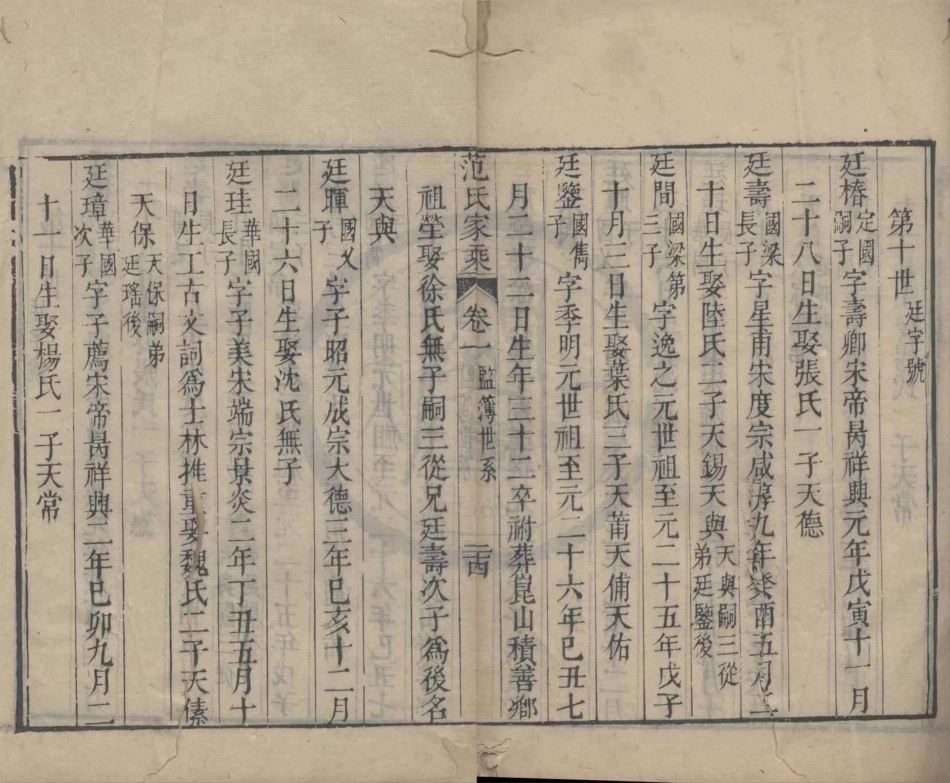 第十世廷字號
廷椿定國嗣子字壽卿宋帝昺祥興元年戊寅十一月
二十八日生娶張氏一子天德
廷壽國梁長子字星甫宋度宗咸淳九年癸酉五月二
十日生娶陸氏二子天錫天與天與嗣三從弟廷鑒後
廷間國梁第三子字逸之元世祖至元二十五年戊子
十月三日生娶葉氏三子天莆天俌天佑
廷鑒國雋子字季明元世祖至元二十六年巳丑七
月二十二日生年三十二卒祔葬崑山積善鄉
范氏家乘卷一監簿世系二四
祖塋娶徐氏無子嗣三從兄廷壽次子為後名
天與
廷暉國乂子字子昭元成宗大德三年巳亥十二月
二十六日生娶沈氏無子
廷珪華國長子字子美宋端宗景炎二年丁丑五月十
日生工古文詞為士林推重娶魏氏二子天傃
天保天保嗣弟廷瑤後
廷璋華國次子字子薦宋帝昺祥興二年巳卯九月二
十一日生娶楊氏一子天常